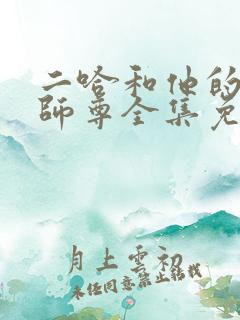 二哈和他的
师尊全集免
月上云初
未经同意禁止转载